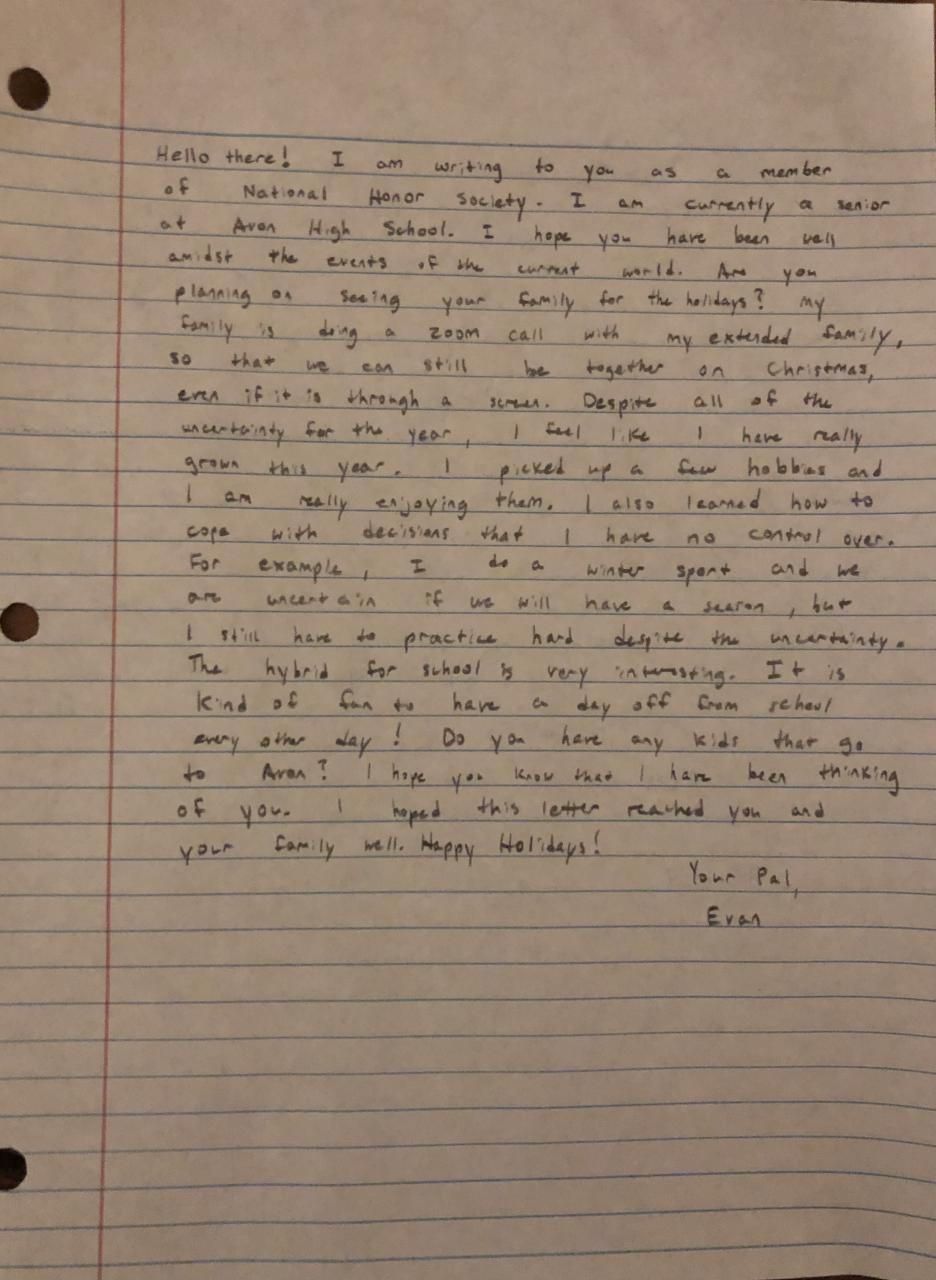 Hello there! I am writing to you as a member
of National Honor Society. I am currently a senior
at Avon High School. I hope you have been well
amidst the events of the current world. Are you
planning on seeing your family for the holidays? My
family is doing a zoom call with my extended family,
so that we can still be together on Christmas,
even if it is through a screen. Despite all of the
uncertainty for the year, I feel like I have really
grown this year. I picked up a few hobbies and
I am really enjoying them. I also learned how to
cope with decisions that I have no control over.
For example, I do a winter sport and we
are uncertain if we will have a season, but
I still have to practice hard despite the uncertainty.
The hybrid for school is very interesting. It is
kind of fun to have a day off from school
every other day! Do you have any kids that go
to Avon? I hope you know that I have been thinking
of you. I hoped this letter reached you and
your family well. Happy Holidays!
Your Pal,
Evan